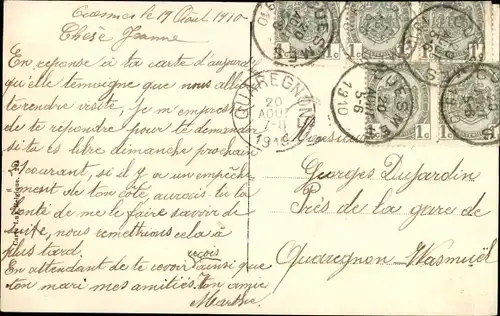 Ecosmes le 19 Août 1910 -
Chèse Jeanne
En reponse à ta carte d'aujourd'
qu'elle temoigne que nous ally
te rendre visite, je m'empres
de te répondre pour te demander
si tu es libre dimanche prochain
courant, si il y a un empêche-
ment de ton côté, aurais tu la
bonté de me le faire savoir de
suite, nous remettrons cela à
plus tard.
reçois
En attendant de te revoir ainsi que
ton mari mes amitiés, ton amie
Marthe
Monsieur
Georges Dujardin
Près de la gare de
Quaregnon Wasmuël
QUAREGNON
20
AOUT
7-
1910
QUESMES
20
AOUT
5-6
1910
1c 1c 1c
1c 1c